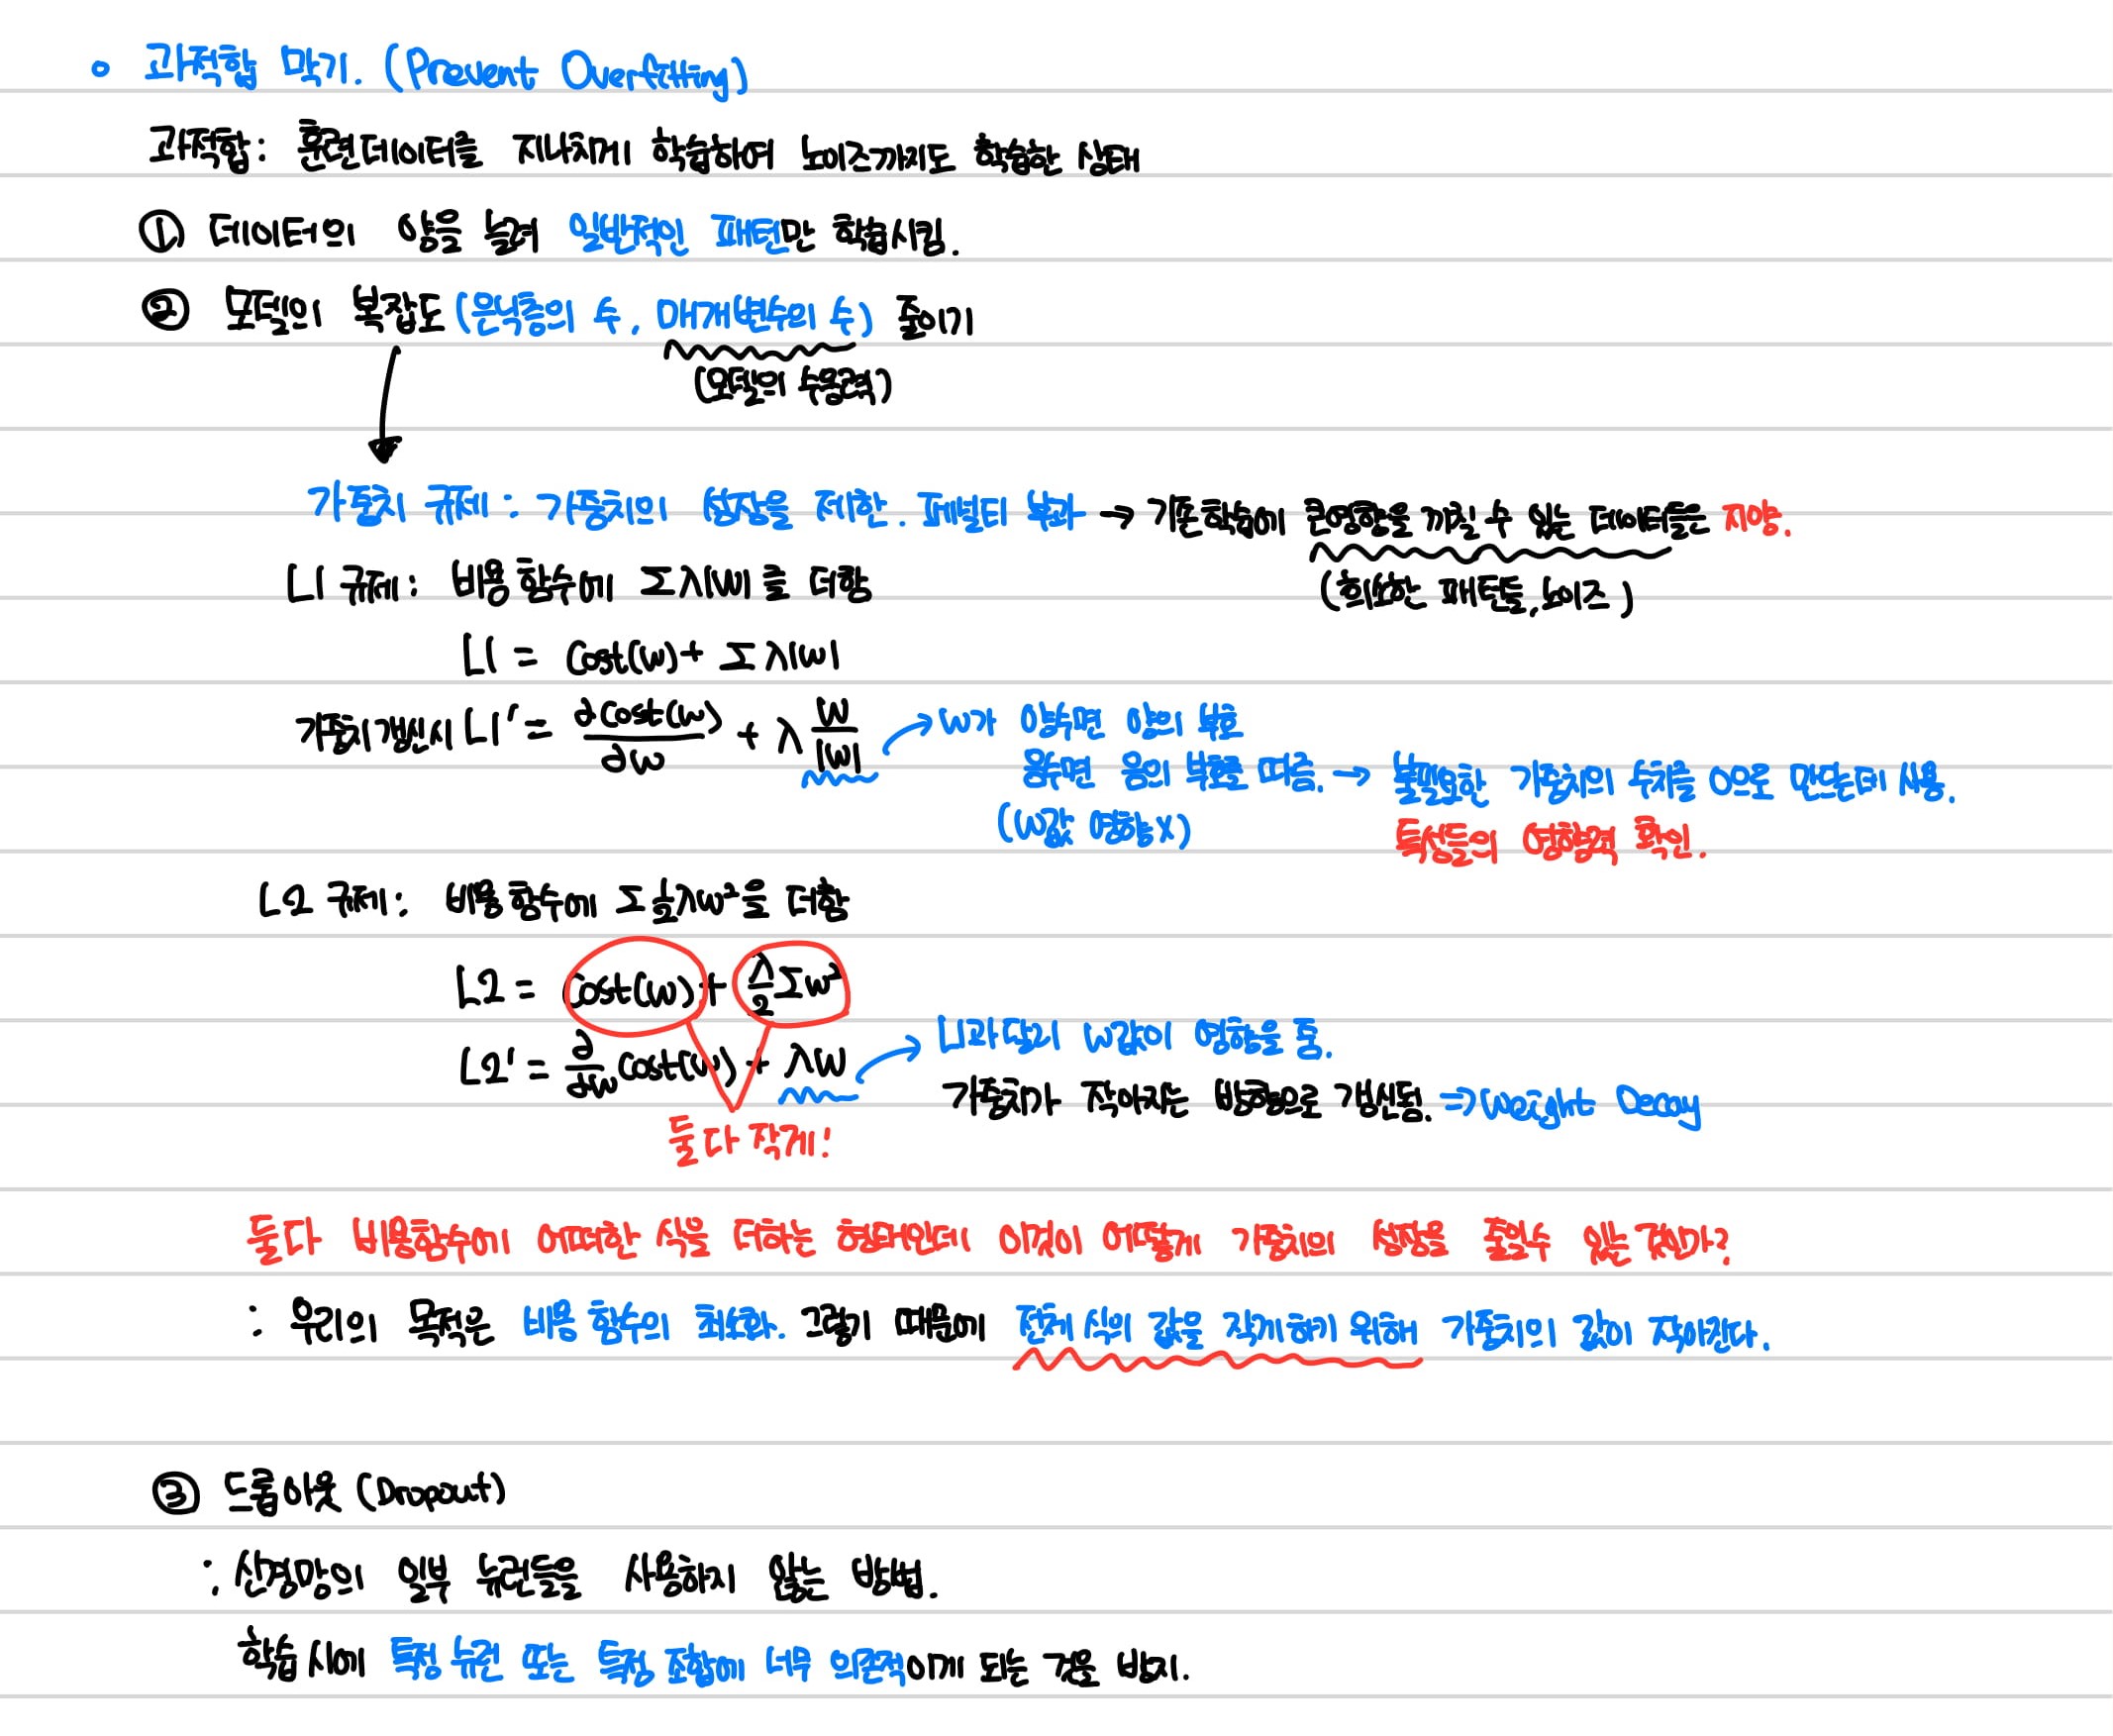 ◦ 과적합 막기. (Prevent Overfitting)
과적합: 훈련데이터를 지나치게 학습하여 노이즈까지도 학습한 상태
① 데이터의 양을 늘려 일반적인 패턴만 학습시킴.
② 모델의 복잡도 (은닉층의 수, 매개변수의 수) 줄이기
(모델의 수용력)
가중치 규제 : 가중치의 성장을 제한. 페널티 부과 → 기존학습에 큰영향을 끼칠 수 있는 데이터들은 지양.
(희소한 패턴들, 노이즈)
L1 규제: 비용함수에 Σλ|W|를 더함
L1 = Cost(W) + Σλ|W|
가중치갱신시 L1' = ∂Cost(W)/∂W + λ W/|W|
W가 양수면 양의 부호
음수면 음의 부호를 띠름. → 불필요한 가중치의 수치를 0으로 만드는데 사용.
(W값 영향X)
특성들의 영향력 확인.
L2 규제: 비용함수에 Σ½λW²을 더함
L2 = Cost(W) + λ/2 ΣW²
L2' = ∂/∂W Cost(W) + λW
L1과 달리 W값이 영향을 줌.
가중치가 작아지는 방향으로 갱신됨. ⇒ Weight Decay
둘다 작게!
둘다 비용함수에 어떠한 식을 더하는 형태인데 이것이 어떻게 가중치의 성장을 줄일수 있는 것인가?
: 우리의 목적은 비용 함수의 최소화. 그렇기 때문에 전체 식의 값을 작게하기 위해 가중치의 값이 작아진다.
③ 드롭아웃 (Dropout)
: 신경망의 일부 뉴런들을 사용하지 않는 방법.
학습 시에 특정 뉴런 또는 특정 조합에 너무 의존적이게 되는 것을 방지.